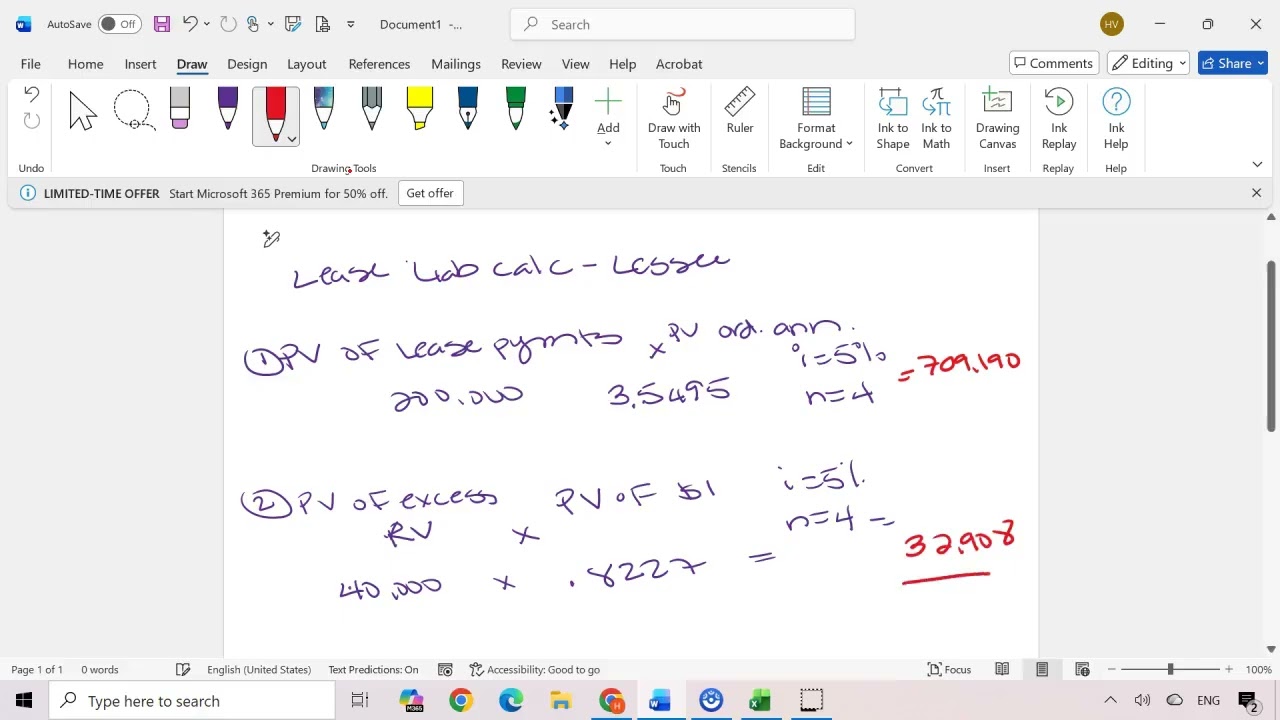 AutoSave Off Document1 -... Search HV
File Home Insert Draw Design Layout References Mailings Review View Help Acrobat Comments Editing Share
Undo
Add
Draw with Touch
Ruler
Format Background
Ink to Shape
Ink to Math
Drawing Canvas
Ink Replay
Ink Help
Undo Drawing Tools Touch Stencils Edit Convert Insert Replay Help
LIMITED-TIME OFFER Start Microsoft 365 Premium for 50% off. Get offer
Lease Liab calc - Lessee
① PV of Lease pymts x PV ord. ann.
i=5%
200,000 3.5495 n=4 = 709,190
② PV of excess RV x PV of $1 i=5%
n=4 = 32,908
40,000 x .8227 =
Page 1 of 1 0 words English (United States) Text Predictions: On Accessibility: Good to go Focus 100%
Type here to search M365 ENG 2